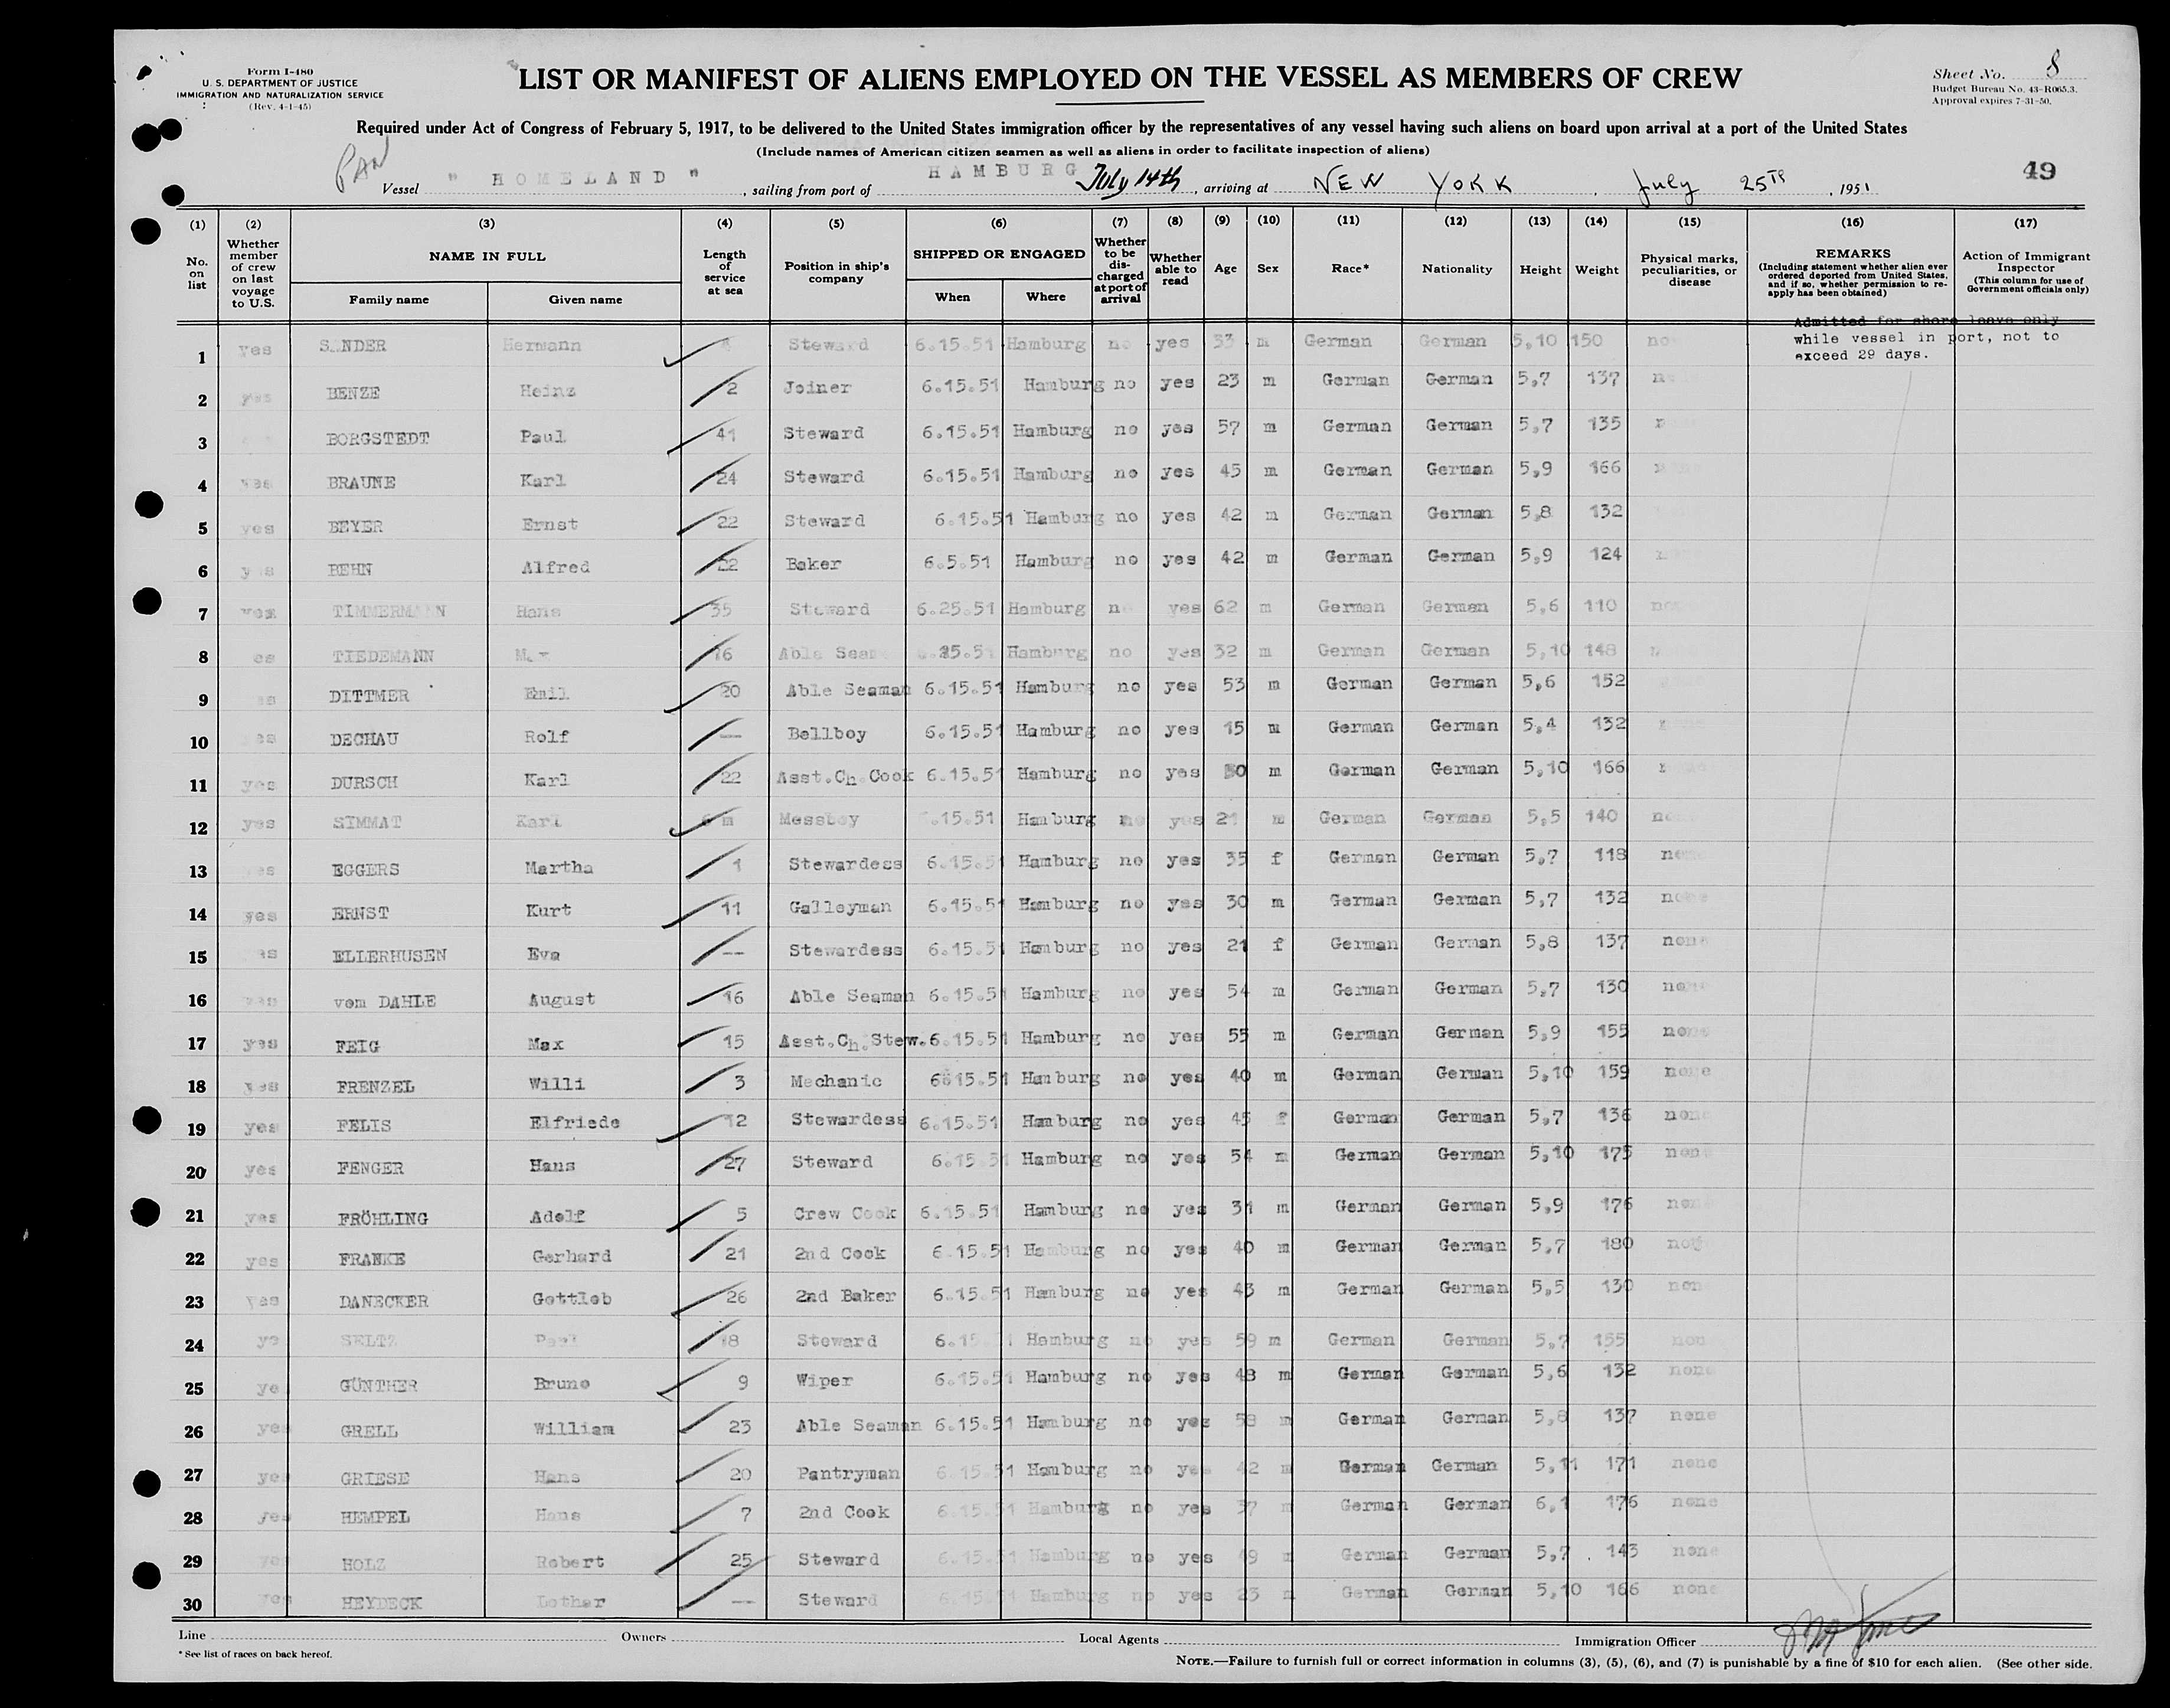 Form I-480
U. S. DEPARTMENT OF JUSTICE
IMMIGRATION AND NATURALIZATION SERVICE
(Rev. 4-1-45)
LIST OR MANIFEST OF ALIENS EMPLOYED ON THE VESSEL AS MEMBERS OF CREW
Sheet No. 8
Budget Bureau No. 43-R065.3.
Approval expires 7-31-50.
Required under Act of Congress of February 5, 1917, to be delivered to the United States immigration officer by the representatives of any vessel having such aliens on board upon arrival at a port of the United States
(Include names of American citizen seamen as well as aliens in order to facilitate inspection of aliens)
49
PAN
Vessel " HOMELAND " , sailing from port of HAMBURG July 14th , arriving at NEW YORK , July 25TH , 1951
(1) (2) (3) (4) (5) (6) (7) (8) (9) (10) (11) (12) (13) (14) (15) (16) (17)
No. on list
Whether member of crew on last voyage to U.S.
NAME IN FULL
Family name
Given name
Length of service at sea
Position in ship's company
SHIPPED OR ENGAGED
When
Where
Whether to be discharged at port of arrival
Whether able to read
Age
Sex
Race*
Nationality
Height
Weight
Physical marks, peculiarities, or disease
REMARKS
(Including statement whether alien ever ordered deported from United States, and if so, whether permission to reapply has been obtained)
Action of Immigrant Inspector
(This column for use of Government officials only)
Admitted for shore leave only
while vessel in port, not to
exceed 29 days.
1 yes S NDER Hermann Steward 6.15.51 Hamburg no yes 33 m German German 5,10 150 no
2 yes BENZE Heinz 2 Joiner 6.15.51 Hamburg no yes 23 m German German 5,7 137 n
3 BORGSTEDT Paul 41 Steward 6.15.51 Hamburg no yes 57 m German German 5,7 135
4 yes BRAUNE Karl 24 Steward 6.15.51 Hamburg no yes 45 m German German 5,9 166
5 yes BEYER Ernst 22 Steward 6.15.51 Hamburg no yes 42 m German German 5,8 132
6 y s BEHN Alfred 22 Baker 6.5.51 Hamburg no yes 42 m German German 5,9 124
7 yes TIMMERMANN Hans 35 Steward 6.25.51 Hamburg n yes 62 m German German 5,6 110 non
8 es TIEDEMANN Max 16 Able Seam 25.51 Hamburg no yes 32 m German German 5,10 148 n
9 es DITTMER Emil 20 Able Seaman 6.15.51 Hamburg no yes 53 m German German 5,6 152
10 es DECHAU Rolf -- Bellboy 6.15.51 Hamburg no yes 15 m German German 5,4 132
11 yes DURSCH Karl 22 Asst.Ch.Cook 6.15.51 Hamburg no yes 50 m German German 5,10 166
12 yes SIMMAT Karl 6 m Messboy .15.51 Hamburg no yes 21 m German German 5,5 140 no
13 es EGGERS Martha 1 Stewardess 6.15.51 Hamburg no yes 35 f German German 5,7 118 none
14 yes ERNST Kurt 11 Galleyman 6.15.51 Hamburg no yes 30 m German German 5,7 132 none
15 es ELLERHUSEN Eva -- Stewardess 6.15.51 Hamburg no yes 21 f German German 5,8 137 none
16 yes vom DAHLE August 16 Able Seaman 6.15.51 Hamburg no yes 54 m German German 5,7 130 none
17 yes FEIG Max 15 Asst.Ch.Stew. 6.15.51 Hamburg no yes 55 m German German 5,9 155 none
18 yes FRENZEL Willi 3 Mechanic 6615.51 Hamburg no yes 40 m German German 5,10 159 none
19 yes FELIS Elfriede 12 Stewardess 6.15.51 Hamburg no yes 45 f German German 5,7 136 none
20 yes FENGER Hans 27 Steward 6.15.51 Hamburg no yes 54 m German German 5,10 175 none
21 yes FRÖHLING Adolf 5 Crew Cook 6.15.51 Hamburg no yes 31 m German German 5,9 176 none
22 yes FRANKE Gerhard 21 2nd Cook 6.15.51 Hamburg no yes 40 m German German 5,7 180 none
23 yes DANECKER Gottlob 26 2nd Baker 6.15.51 Hamburg no yes 43 m German German 5,5 130 non
24 ye SELTZ Paul 18 Steward 6.15 1 Hamburg no yes 59 m German German 5,7 155 non
25 ye GÜNTHER Bruno 9 Wiper 6.15.51 Hamburg no yes 48 m German German 5,6 132 none
26 yes GRELL William 23 Able Seaman 6.15.51 Hamburg no yes 58 m German German 5,8 137 none
27 yes GRIESE Hans 20 Pantryman 6.15.51 Hamburg no yes 42 m German German 5,11 171 none
28 yes HEMPEL Hans 7 2nd Cook 6.15.51 Hamburg no yes 37 m German German 6,1 176 none
29 yes HOLZ Robert 25 Steward 6.15.51 Hamburg no yes 49 m German German 5,7 143 none
30 yes HEYDECK Lothar -- Steward 6.15.51 Hamburg no yes 23 m German German 5,10 166 none
Line Owners Local Agents Immigration Officer
* See list of races on back hereof.
NOTE.—Failure to furnish full or correct information in columns (3), (5), (6), and (7) is punishable by a fine of $10 for each alien. (See other side.